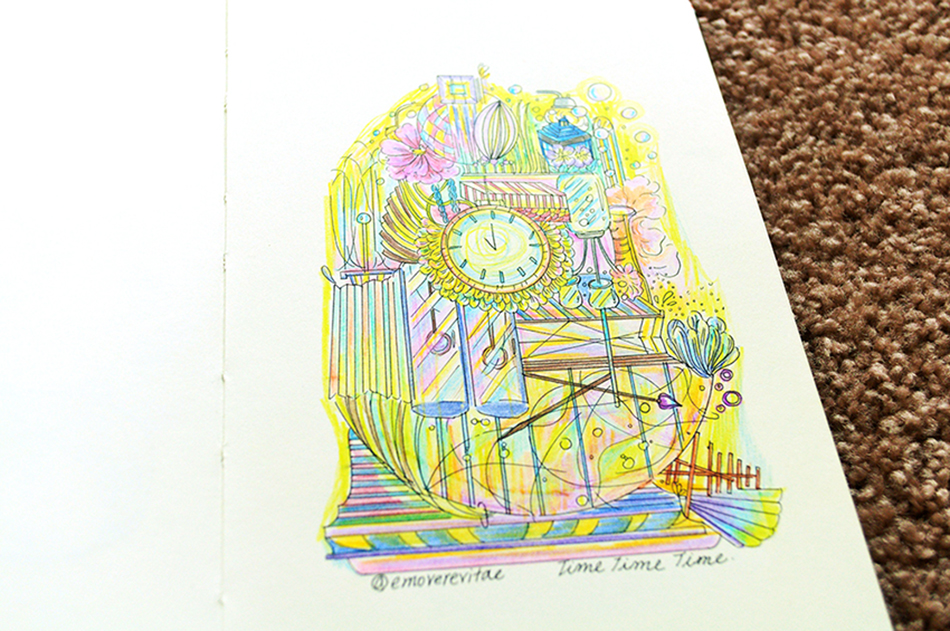 @emoverevitae
Time Time Time.